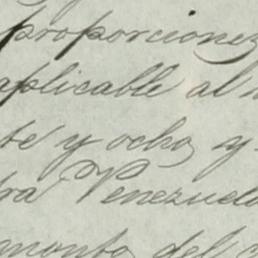 proporciones
aplicable al
te y ocho, y
ra Venezuela
monto del